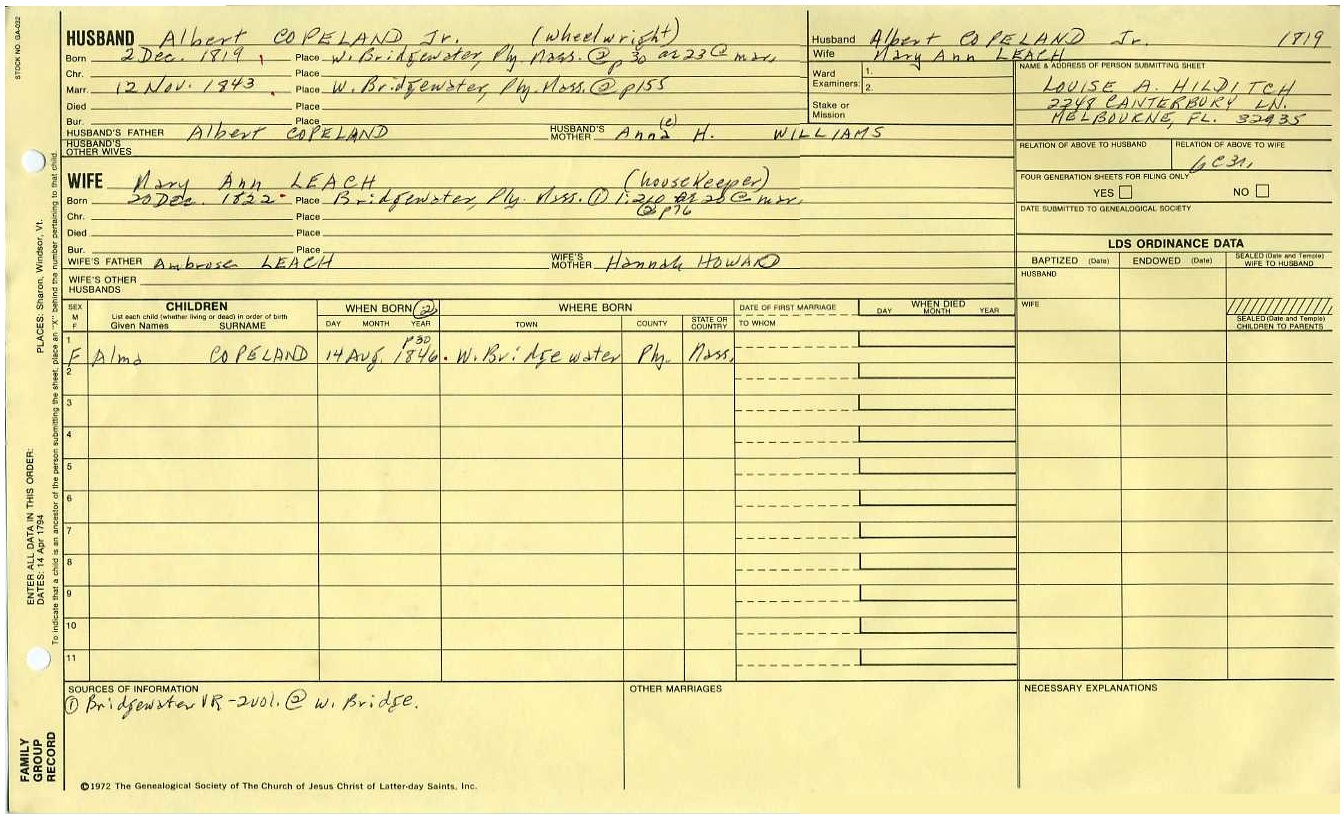 STOCK NO. GA-032
HUSBAND Albert COPELAND Jr. (wheelwright)
Born 2 Dec. 1819 Place W. Bridgewater, Ply. Mass. @ p 30 or 23 @ mar.
Chr. Place
Marr. 12 Nov. 1843 Place W. Bridgewater, Ply. Mass. @ p155
Died Place
Bur. Place
HUSBAND'S FATHER Albert COPELAND HUSBAND'S MOTHER Anna (e) H. WILLIAMS
HUSBAND'S OTHER WIVES
WIFE Mary Ann LEACH (housekeeper)
Born 20 Dec. 1822 Place Bridgewater, Ply. Mass. ① 1:210 or 20 @ mar.
@ p76
Chr. Place
Died Place
Bur. Place
WIFE'S FATHER Ambrose LEACH WIFE'S MOTHER Hannah HOWARD
WIFE'S OTHER HUSBANDS
Husband Albert COPELAND Jr. 1819
Wife Mary Ann LEACH
Ward Examiners: 1.
2.
Stake or Mission
NAME & ADDRESS OF PERSON SUBMITTING SHEET
LOUISE A. HILDITCH
2248 CANTERBURY LN.
MELBOURNE, FL. 32935
RELATION OF ABOVE TO HUSBAND RELATION OF ABOVE TO WIFE
6C3r,
FOUR GENERATION SHEETS FOR FILING ONLY
YES NO
DATE SUBMITTED TO GENEALOGICAL SOCIETY
LDS ORDINANCE DATA
BAPTIZED (Date) ENDOWED (Date) SEALED (Date and Temple) WIFE TO HUSBAND
HUSBAND
WIFE
SEALED (Date and Temple) CHILDREN TO PARENTS
SEX M F CHILDREN List each child (whether living or dead) in order of birth Given Names SURNAME
WHEN BORN ② DAY MONTH YEAR
WHERE BORN TOWN COUNTY STATE OR COUNTRY
DATE OF FIRST MARRIAGE TO WHOM
WHEN DIED DAY MONTH YEAR
1 p30
F Alma COPELAND 14 Aug. 1846. W. Bridgewater Ply. Mass.
2
3
4
5
6
7
8
9
10
11
SOURCES OF INFORMATION
① Bridgewater VR-2vol. @ W. Bridge.
OTHER MARRIAGES
NECESSARY EXPLANATIONS
©1972 The Genealogical Society of The Church of Jesus Christ of Latter-day Saints, Inc.
FAMILY GROUP RECORD
ENTER ALL DATA IN THIS ORDER:
DATES: 14 Apr 1794 PLACES: Sharon, Windsor, Vt.
To indicate that a child is an ancestor of the person submitting the sheet, place an "X" behind the number pertaining to that child.